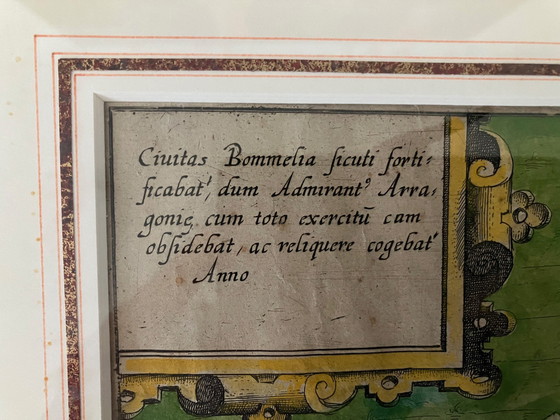 Ciuitas Bommelia ſicuti forti-
ficabat', dum Admirantꝰ Arra,
gonię, cum toto exercitū cam
obſidebat, ac reliquere cogebat'
Anno